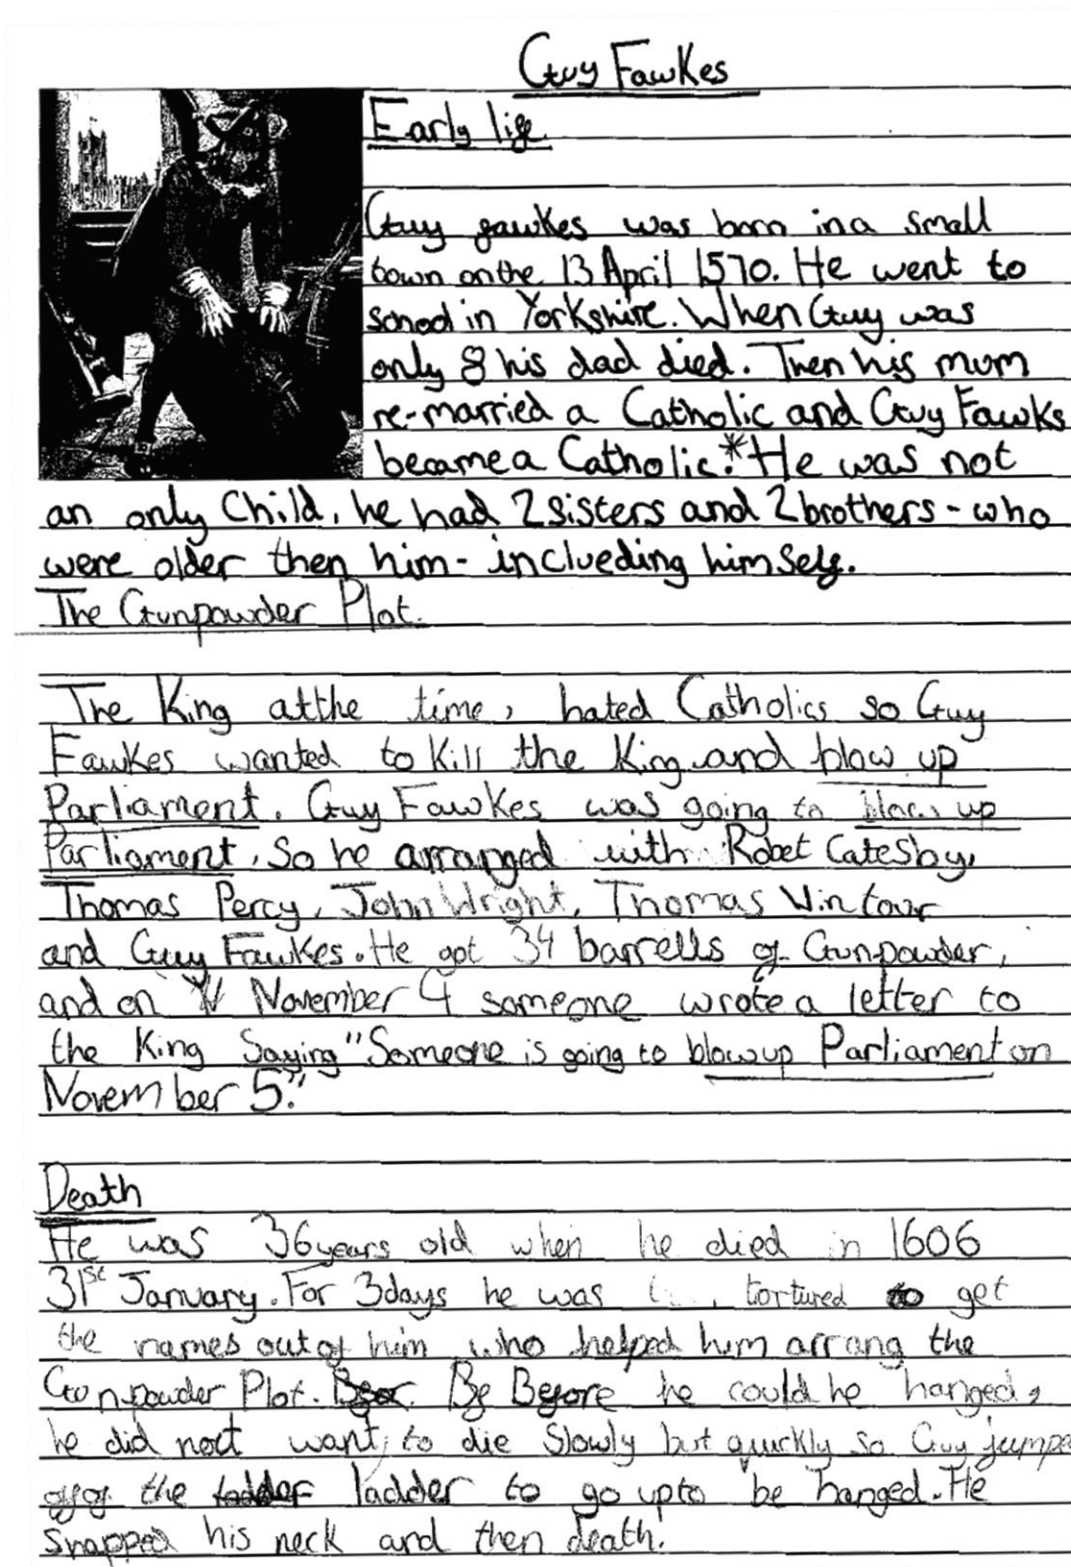 Guy Fawkes
Early life
Guy fawkes was born in a small
town on the 13 April 1570. He went to
school in Yorkshire. When Guy was
only 8 his dad died. Then his mum
re-married a Catholic and Guy Fawks
became a Catholic.* He was not
an only Child, he had 2 sisters and 2 brothers - who
were older then him - inclueding himself.
The Gunpowder Plot.
The King at the time, hated Catholics so Guy
Fawkes wanted to Kill the King and blow up
Parliament. Guy Fawkes was going to blow up
Parliament. So he arranged with Robet Catesby,
Thomas Percy, John Wright, Thomas Wintour
and Guy Fawkes. He got 34 barrells of Gunpowder,
and on November 4 someone wrote a letter to
the King Saying "Someone is going to blow up Parliament on
November 5."
Death
He was 36 years old when he died in 1606
31st January. For 3 days he was tortured to get
the names out of him who helped him arrang the
Gunpowder Plot. Be Before he could he hanged,
he did not want to die Slowly but quickly so Guy jumpe
off of the ladder to go up to be hanged. He
snapped his neck and then death.